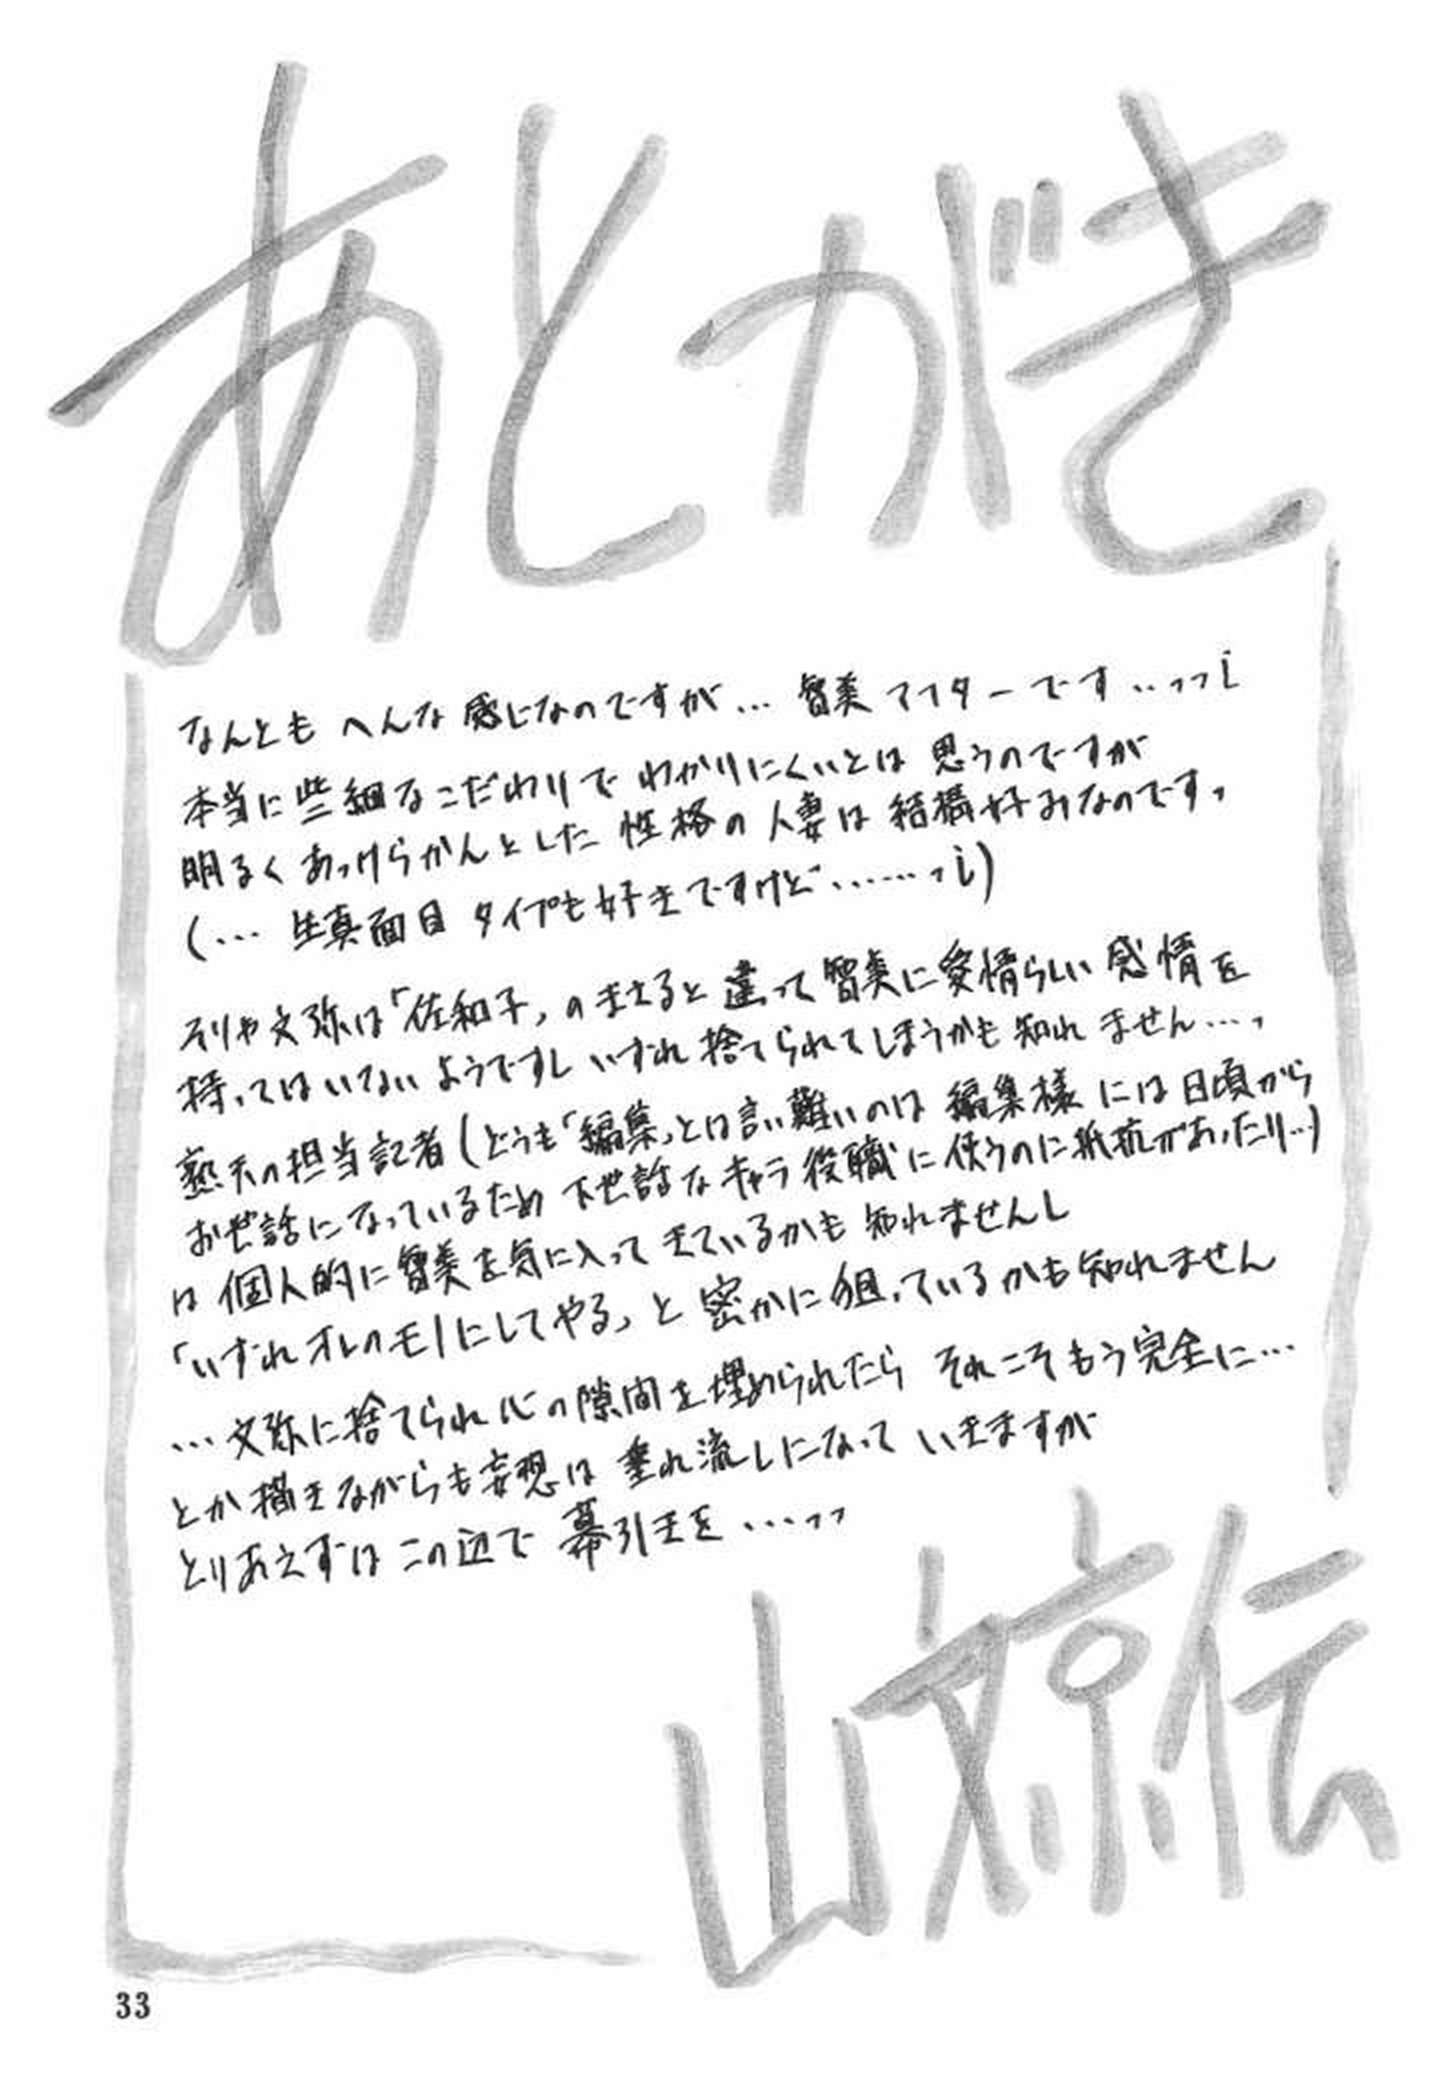 あとがき
なんとも へんな 感じなのですが… 智美 アフターです…ッッi
本当に些細なこだわりで わかりにくいとは 思うのですが
明るく あっけらかんとした 性格の 人妻は 結構好みなのですッ
(… 生真面目 タイプも好きですけど……ッi)
そりゃ文弥は「佐和子」のまさると違って智美に愛情らしい感情を
持ってはいないようですし いずれ捨てられてしまうかも知れません…ッ
熟天の担当記者(どうも「編集」とは言い難いのは 編集様には日頃から
お世話になっているため 下世話なキャラ役職に使うのに抵抗があったり…)
は 個人的に智美を気に入って きているかも 知れませんし
「いずれオレのモノにしてやる」と 密かに狙っているかも知れません
…文弥に捨てられ心の隙間を埋められたら それこそもう完全に…
とか描きながらも妄想は 垂れ流しになって いきますが
とりあえずは この辺で 幕引きを…ッッ
山文京伝
33